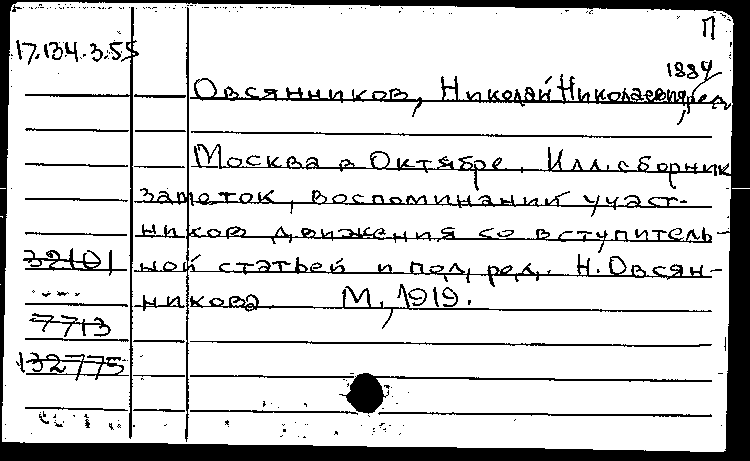 П
17.134.3.55
1884
Овсянников, Николай Николаевич, ред.
Москва в Октябре. Илл. сборник
заметок, воспоминаний участ-
ников движения со вступитель-
32101
ной статьей и под ред. Н. Овсян-
никова М., 1919.
7713
132775